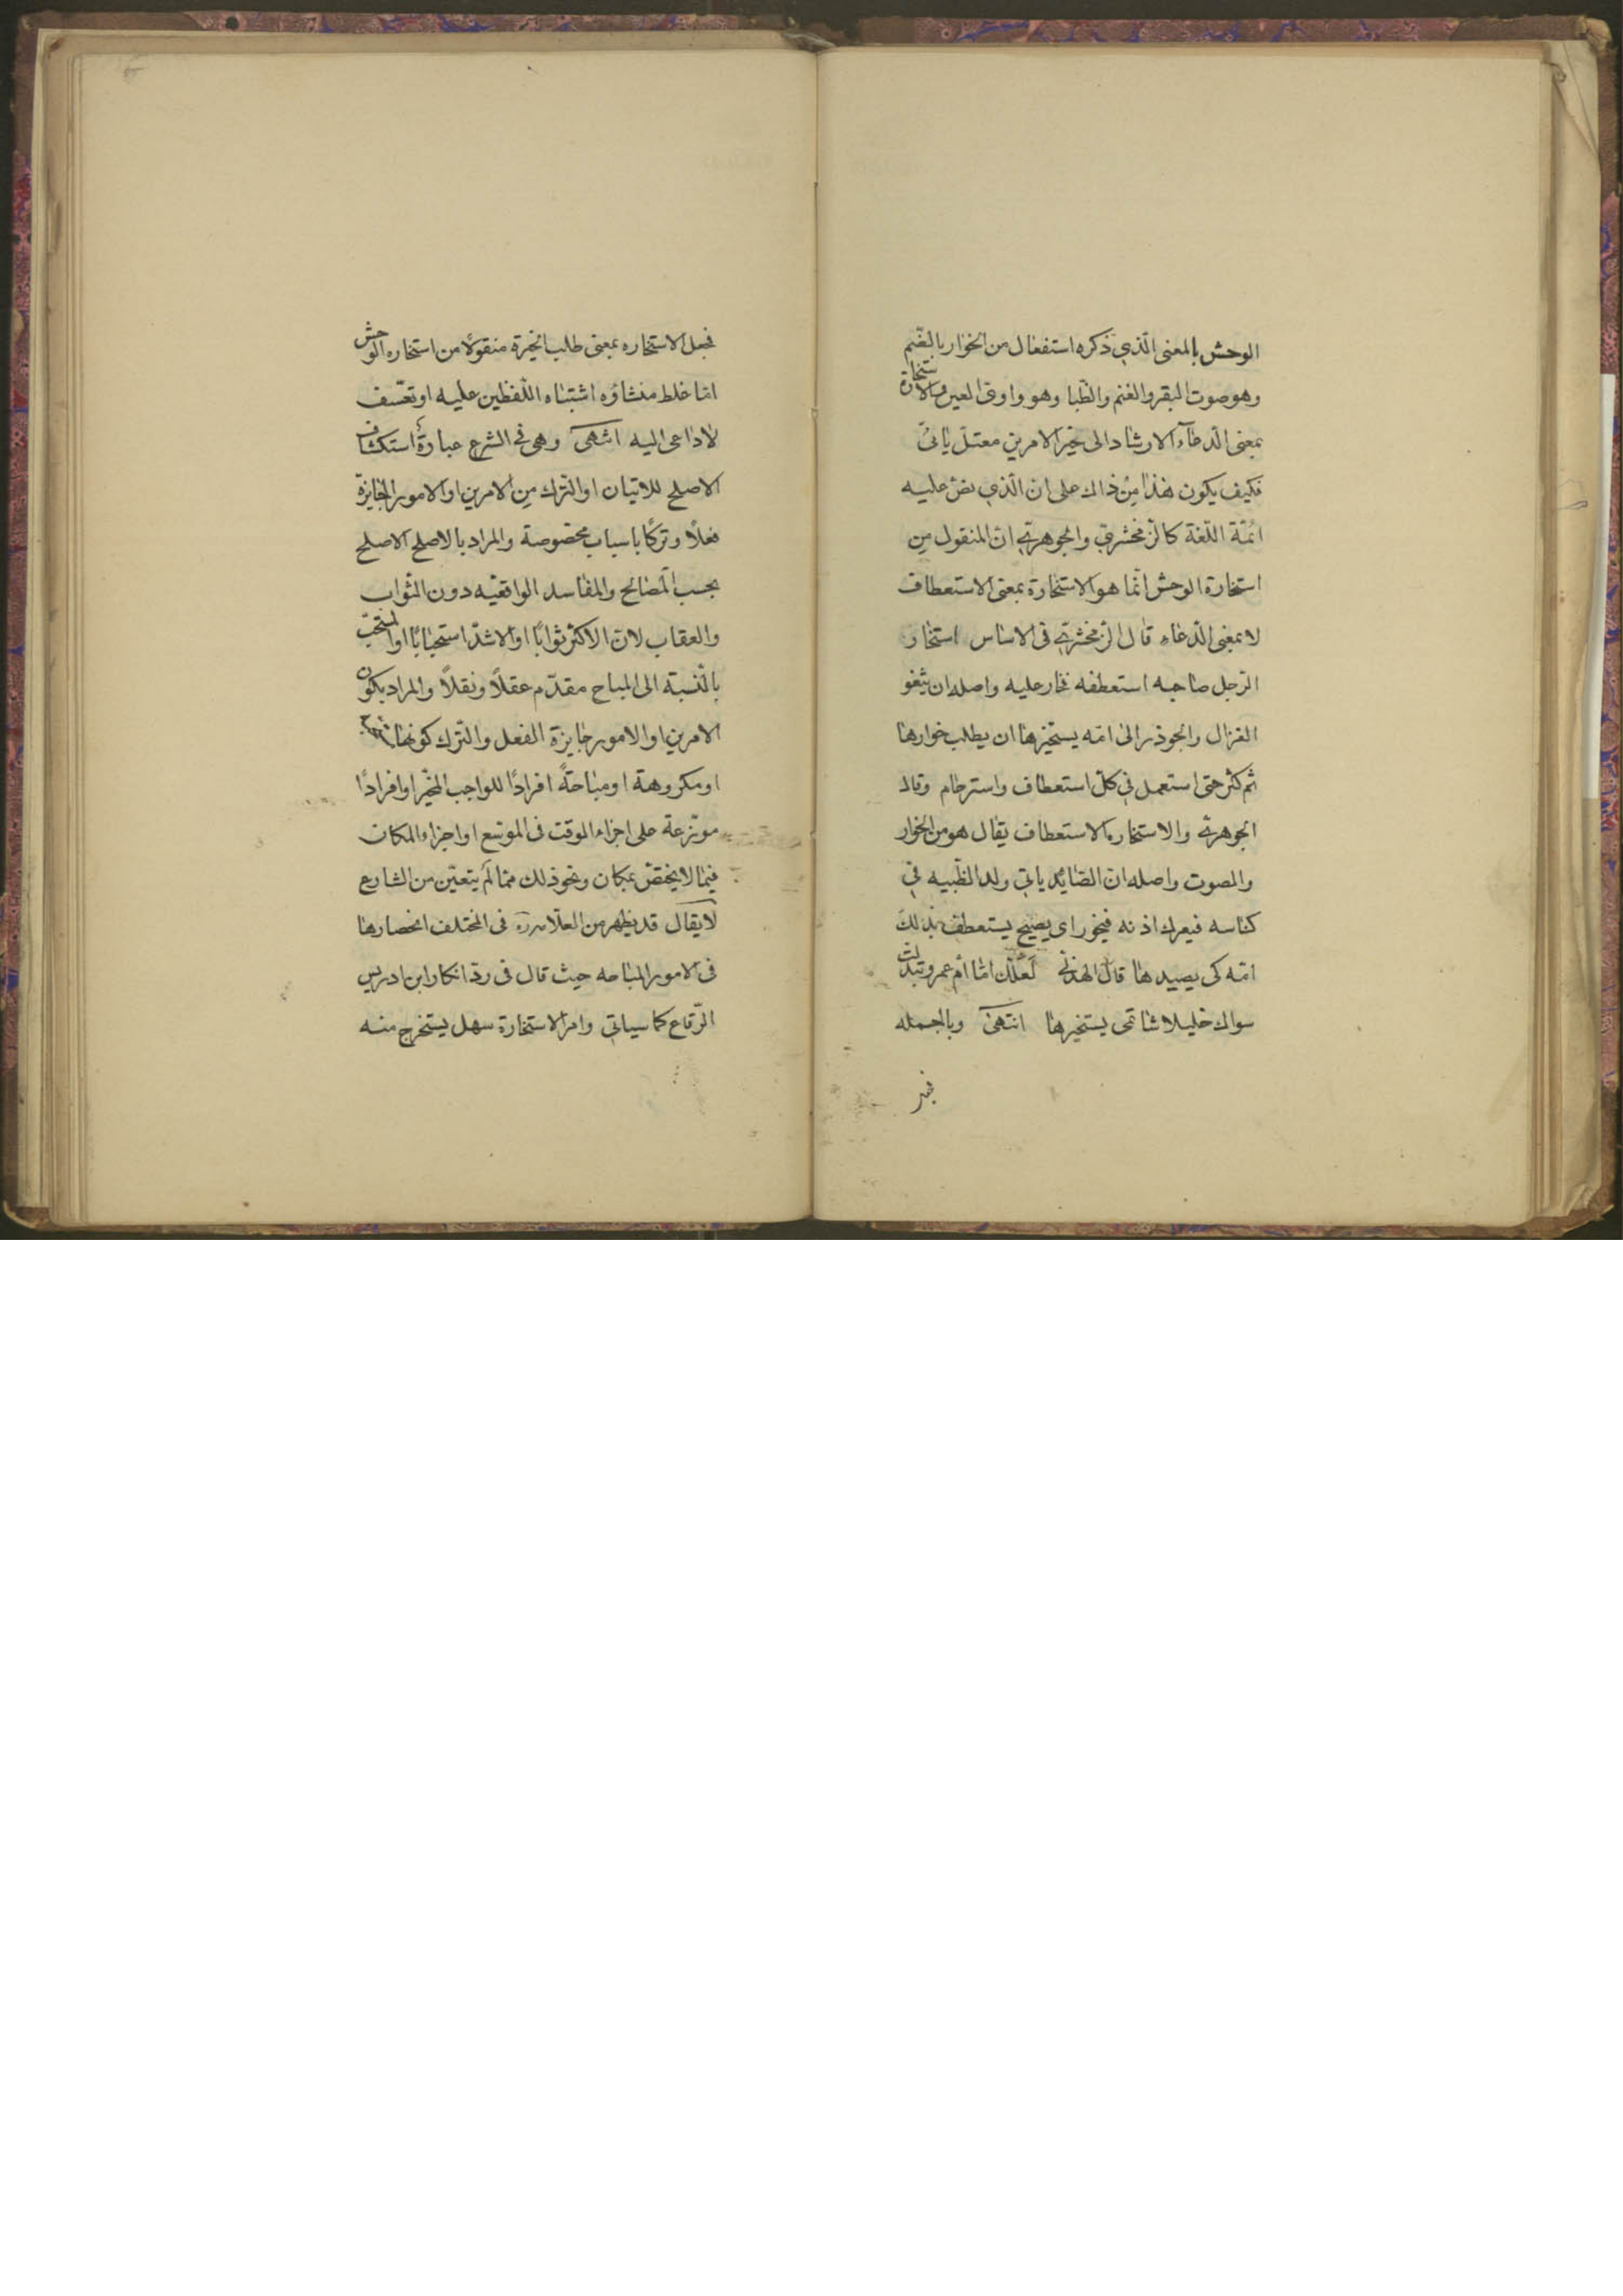 الوحش بالمعنى الّذي ذكره استفعال من الخوار بالضّم
وهو صوت البقر والغنم والظّبا وهو واوى العين والاستخارة
بمعنى الدعآء الارشاد الى خير الامرين معتلّ يائىّ
فكيف يكون هذا من ذاك على ان الّذي نصّ عليه
ائمّة اللّغة كالزّمخشريّ والجوهريّ انّ المنقول من
استخارة الوحش انّما هو الاستخارة بمعنى الاستعطاف
لا بمعنى الدّعاء قال الزّمخشريّ فى الاساس استخار
الرّجل صاحبه استعطفه فخار عليه واصله ان يثغو
الغزال والجوذر الى امّه يستخيرها ان يطلب خوارها
ثم كثر حتى استعمل في كلّ استعطاف واسترحام وقال
الجوهريّ والاستخاره الاستعطاف يقال هو من الخوار
والصوت واصله انّ الصّايد ياتي ولد الظّبيه في
كناسه فيعرك اذنه فيخور اى يصيح يستعطف بذلك
امّه كى يصيدها قال الهذلي لعلّك امّا امّ عمرو تبدّلت
سواك خليلا شاتمى يستخيرها انتهى وبالجمله
فجعل الاستخاره بمعنى طلب الخيرة منقولاً من استخاره الوحش
امّا غلط منشاؤه اشتباه اللّفظين عليه او تعسّف
لا داعى اليه انتهى وهى في الشرع عبارة استكشاف
الاصلح للاتيان او التّرك من الامرين او الامور الجايزة
فعلاً وتركًا باسباب مخصوصة والمراد بالاصلح الاصلح
بحسب المصالح والمفاسد الواقعيّه دون الثّواب
والعقاب لانّ الاكثر ثوابًا او الاشدّ استحبابًا او المستحبّ
بالنّسبة الى المباح مقدّم عقلاً ونقلاً والمراد بكون
الامرين او الامور جايزة الفعل والتّرك كونها
او مكروهة او مباحةً افرادًا للواجب المخيّر او افرادًا
موزّعة على اجزاء الوقت فى الموسّع او اجزاء المكان
فيما لا يختصّ بمكان ونحو ذلك ممّا لم يتعيّن من الشارع
لا يقال قد يظهر من العلّامة ره فى المختلف انحصارها
فى الامور المباحه حيث قال فى ردّ انكار ابن ادريس
الرّقاع كما سياتي وامر الاستخارة سهل يستخرج منه